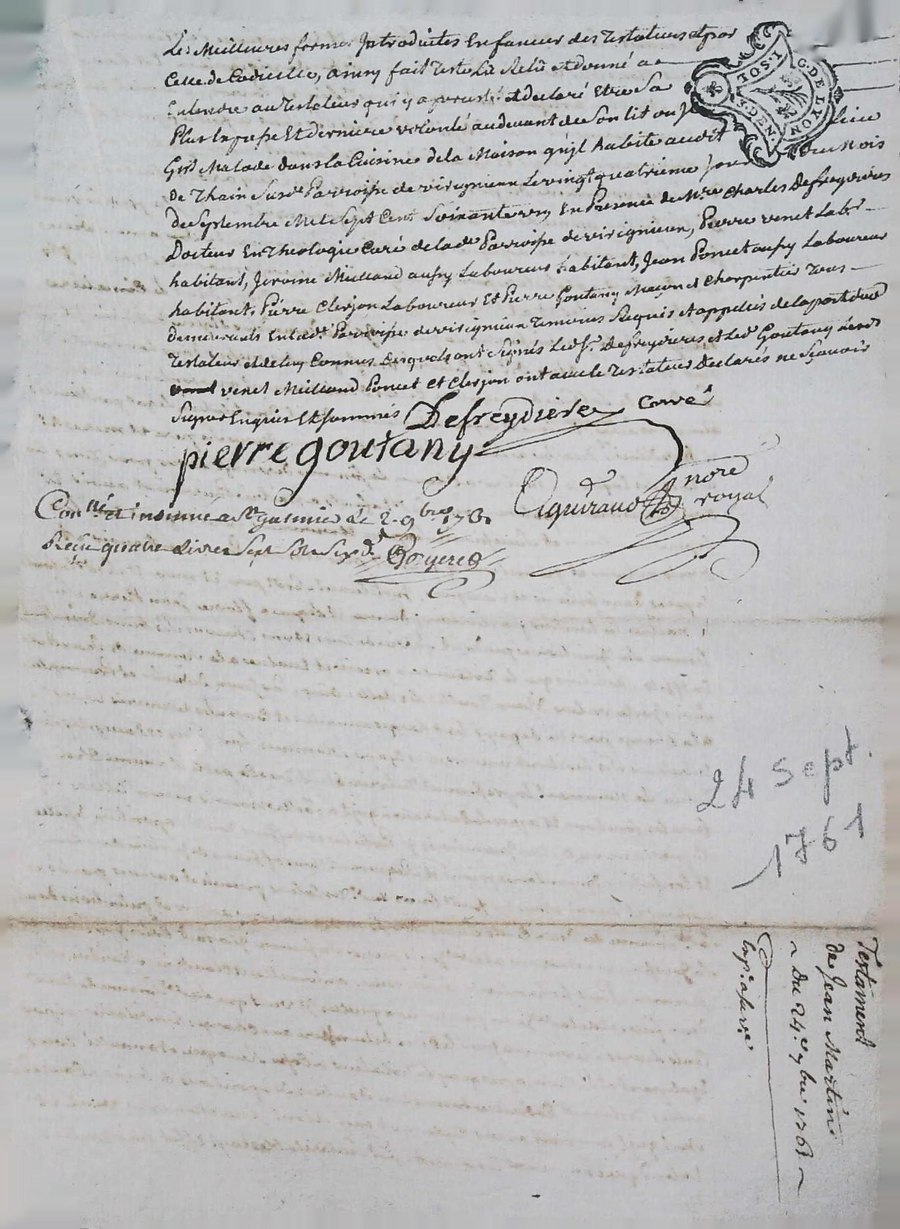 Les Meilleures formes Introduites En faveur des Testateurs et par
Celle de Codicille, ainsy fait Testé Lû Relû et donné a
Entendre au Testateur qui y a et declaré Etre Sa
Plus Expresse Et derniere volonté au devant de Son lit ou Il
Gist Malade dans la Cuisine de la Maison qu'jl habite audit
De Thain Susde Parroisse de virignieu Le vingt quatrieme jour du Mois
De Septembre Mil Sept Cent Soixante un En Presence de Mre Charles Defreydieres
Docteur En Theologie Curé de lade Parroisse de virignieu, Pierre venet Labr
habitant, Jerome Milland aussy Laboureur habitant, Jean Poncet aussy Laboureur
habitant, Pierre Clerjon Laboureur Et Pierre Goutany Maçon et Charpentier Tous
demeurants En lade Parroisse de virignieu Temoins Requis et appelés de la part dud
Testateur et de luy Connus Desquels ont Signés Led Sr Defreydieres et Led Goutany Led
venet Milland Poncet et Clerjon ont avec le Testateur Declarés ne Sçavoir
Signer Enquis Et Sommés
Defreydiere curé
pierre goutany
nore royal
Conllé et insinué a St le 2 9bre 1761
Reçu quatre Livres Sept Sols Six d.
G. DE LYON
I. SOL
3. DEN.
24 Sept.
1761
Testament
de Jean Martin
Du 24e 7bre 1761